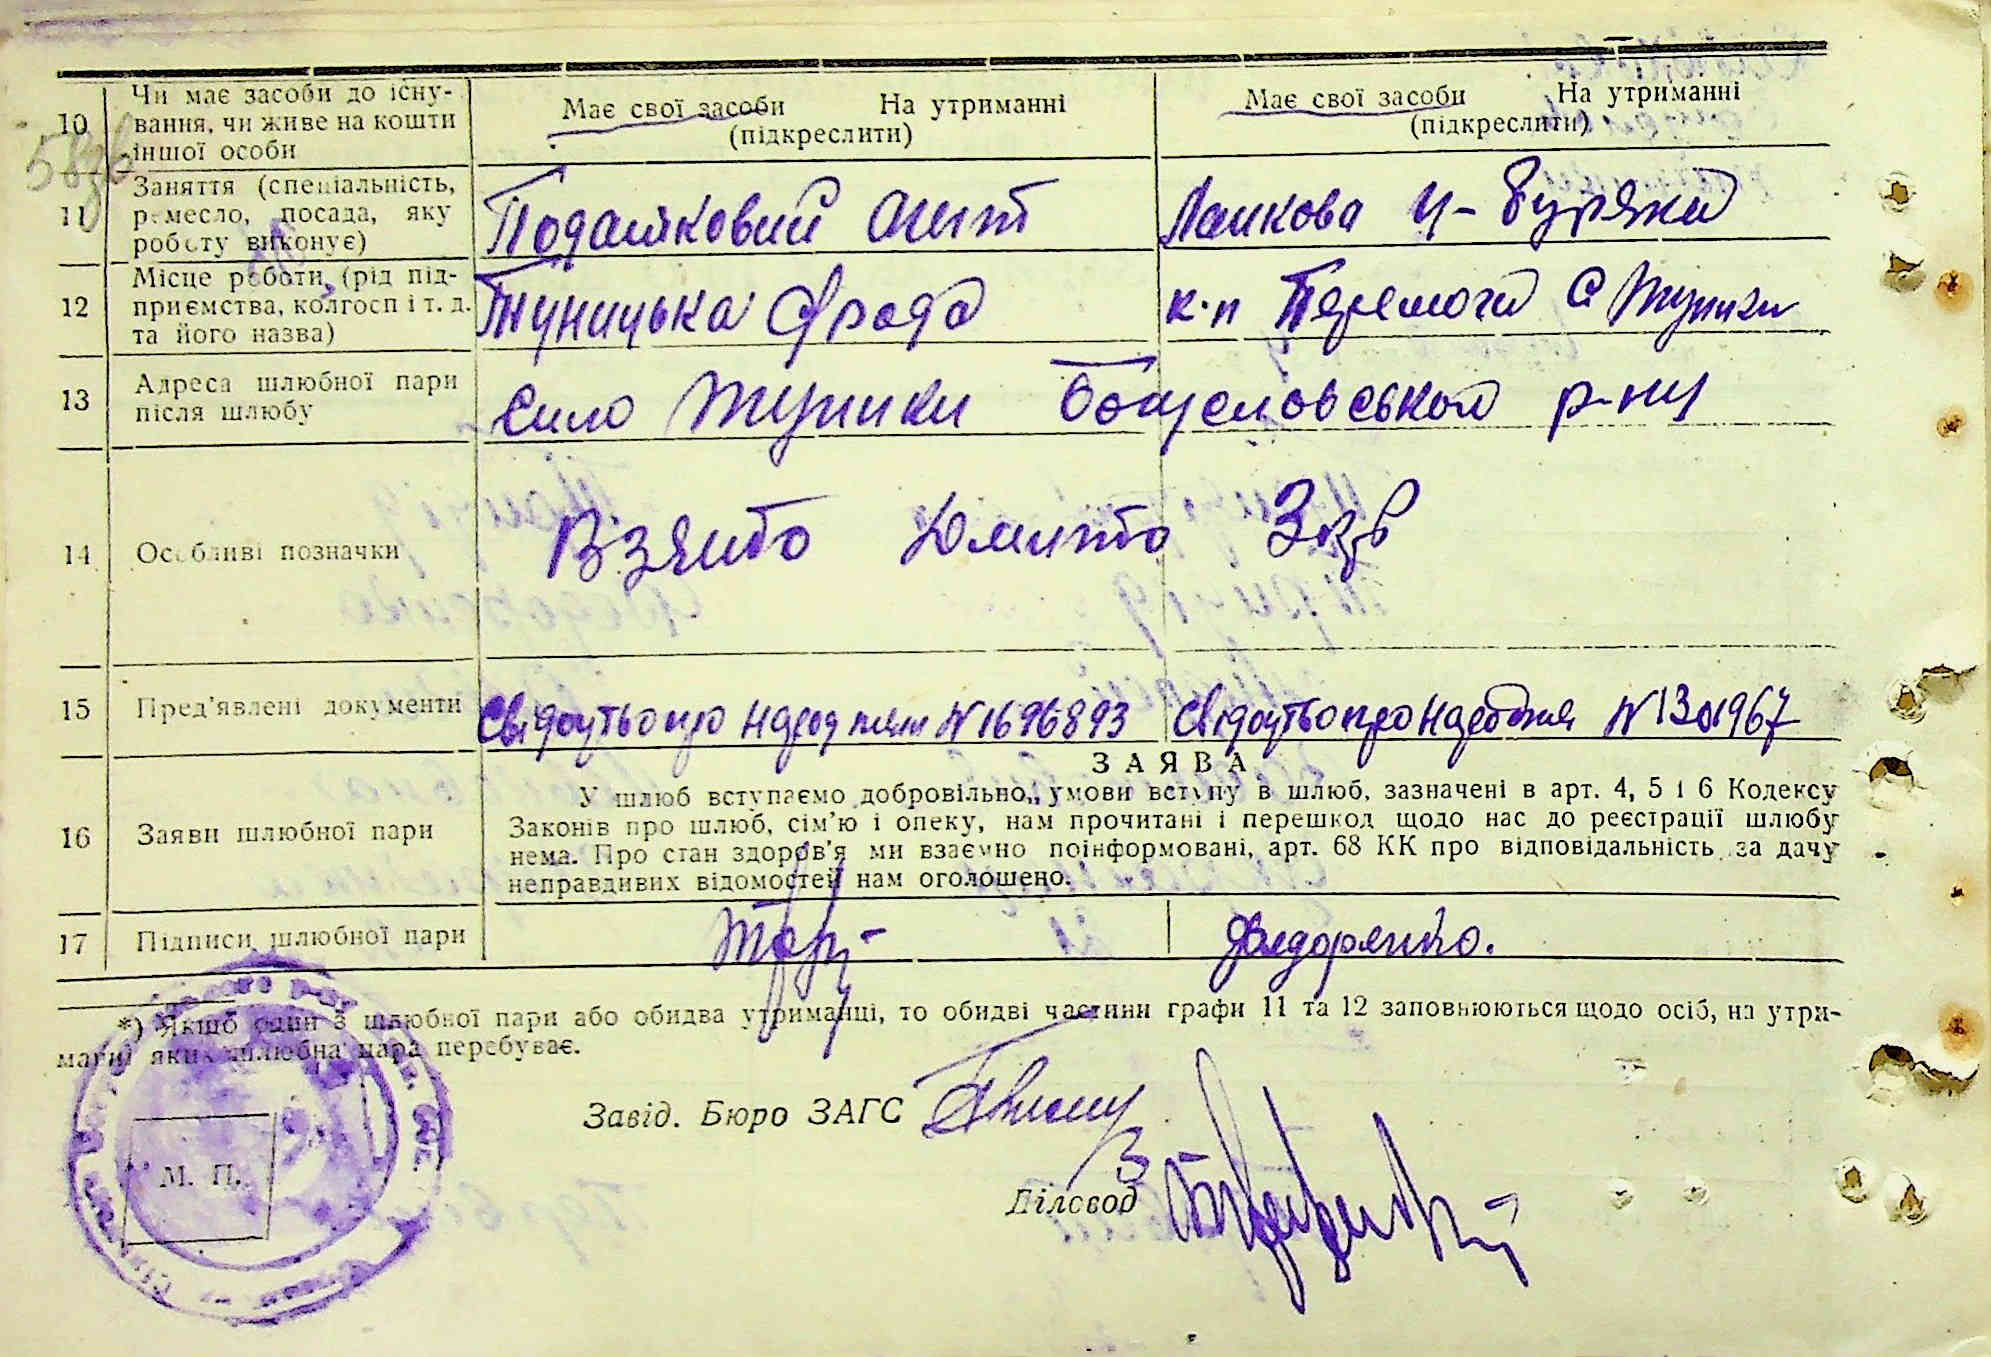 10
Чи має засоби до існу-
вання, чи живе на кошти
іншої особи
Має свої засоби На утриманні
(підкреслити)
Має свої засоби На утриманні
(підкреслити)
11
Заняття (спеціальність,
ремесло, посада, яку
роботу виконує)
Податковий агент
Ланкова ц-буряків
12
Місце роботи, (рід під-
приємства, колгосп і т. д.
та його назва)
с/рада
к-п Перемога С
13
Адреса шлюбної пари
після шлюбу
Село Богуславського р-ну
14
Особливі позначки
Взято 3 крб
15
Пред'явлені документи
Свідоцтво про народження N 1696893
Свідоцтво про народження N
16
Заяви шлюбної пари
ЗАЯВА
У шлюб вступаємо добровільно, умови вступу в шлюб, зазначені в арт. 4, 5 і 6 Кодексу
Законів про шлюб, сім'ю і опеку, нам прочитані і перешкод щодо нас до реєстрації шлюбу
нема. Про стан здоров'я ми взаємно поінформовані, арт. 68 КК про відповідальність за дачу
неправдивих відомостей нам оголошено.
17
Підписи шлюбної пари
Федоренко.
*) Якщо один з шлюбної пари або обидва утриманці, то обидві частини графи 11 та 12 заповнюються щодо осіб, на утри-
манні яких шлюбна пара перебуває.
Завід. Бюро ЗАГС
Ділєвод
М. П.